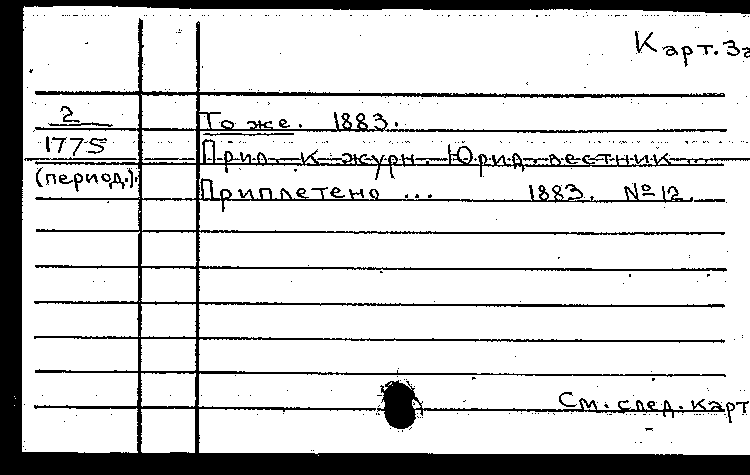 Карт. За
2
1775
(период.).
То же. 1883.
Прил. к журн. Юрид. вестник ...
Приплетено ... 1883. № 12.
См. след. карт